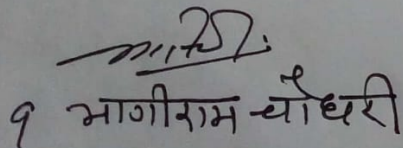 १ भागीराम चौधरी